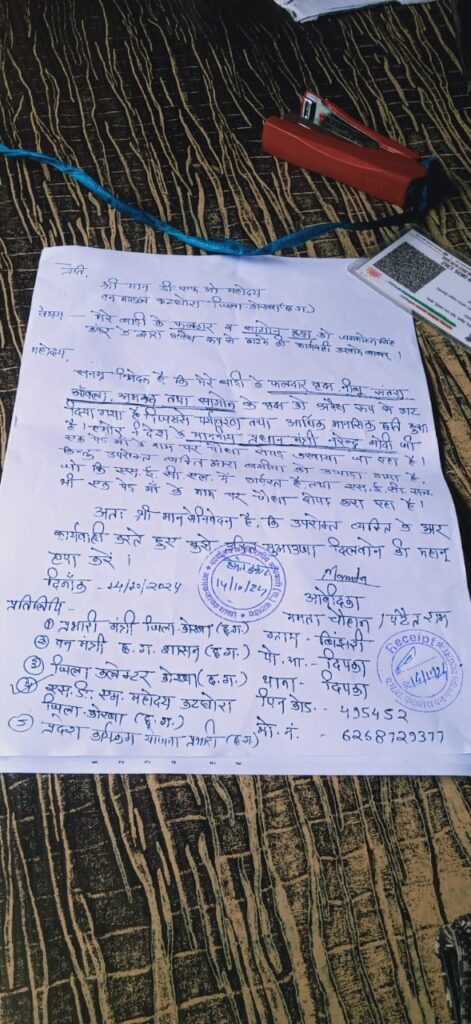 प्रति,
श्री मान डी एफ ओ महोदय
वन मण्डल कटघोरा जिला कोरबा (छ.ग.)
विषय - मेरे बाड़ी के फलदार व सागौन वृक्ष को
के द्वारा अवैध रूप से काटने की कार्यवाही करवाने बाबत् ।
महोदय,
सनम्र निवेदन है, कि मेरे बाड़ी के फलदार वृक्ष नीबू, संतरा
आँवला, अमरूद तथा सागौन के वृक्ष को अवैध रूप से काट
दिया गया है जिससे पर्यावरण तथा आर्थिक मानसिक क्षति हुआ
है। हमारे देश के माननीय प्रधान मंत्री नरेन्द्र मोदी जी
एक पेड़ माँ के नाम पर पौधा रोपण करवाया जा रहा है।
किन्तु उपरोक्त व्यक्ति द्वारा बगीचा को उजाड़ा गया है।
जो कि एस. ई. सी. एल. में कार्यरत है तथा एस. ई. सी. एल.
भी एक पेड़ माँ के नाम पर पौधा रोपण करा रहा है।
अतः श्री मान से निवेदन है, कि उपरोक्त व्यक्ति के ऊपर
कार्यवाही करते हुए मुझे उचित मुआवजा दिलवाने की महान्
कृपा करें ।
दिनाँक - 14/10/2024
14/10/24
Mamta
आवेदिका
ममता चौहान / पंडित राम
प्रतिलिपि -
① प्रभारी मंत्री जिला कोरबा (छ.ग.)
② वन मंत्री छ.ग. शासन (छ.ग.)
③ जिला कलेक्टर कोरबा (छ.ग.)
④ एस. डी. एम. महोदय कटघोरा
जिला कोरबा (छ.ग.)
⑤
प्रभारी (छ.ग.)
ग्राम -
पो. आ. - दिपका
थाना - दिपका
पिन कोड - 495452
मो. नं. - 6268729377
Receipt
14/10/24